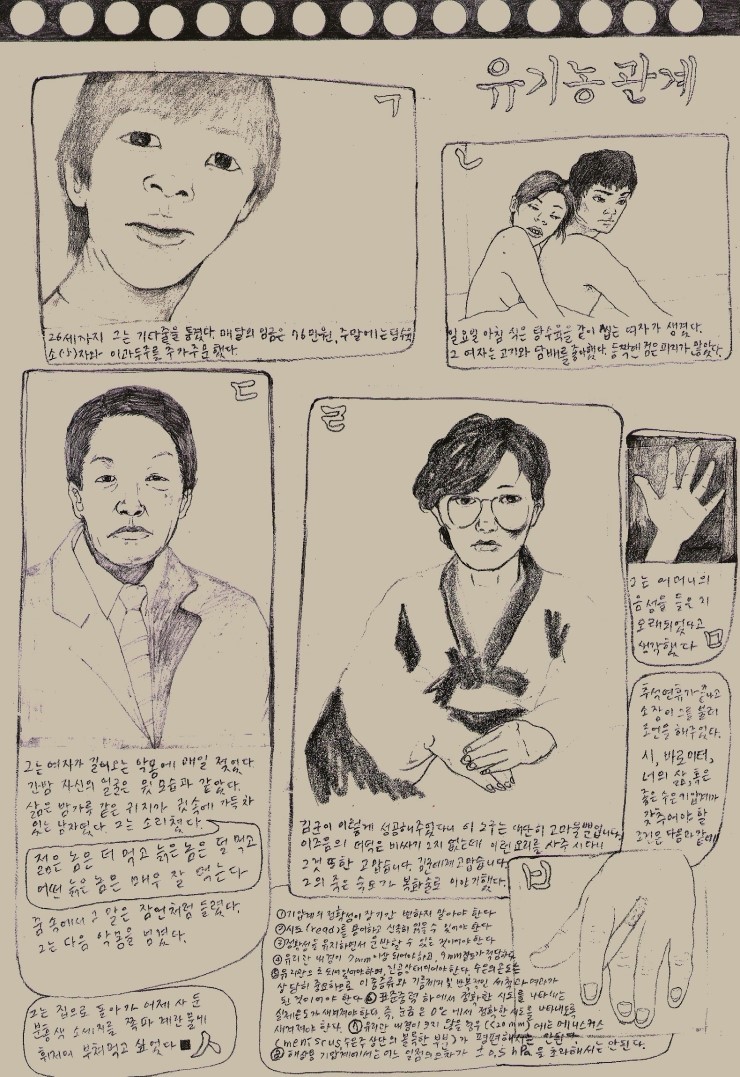 유기농 관계
ㄱ
26세까지 그는 기타줄을 튕겼다. 매달의 임금은 76만원, 주말에는 탕수육
소(小)자와 이과두주를 추가주문했다.
ㄴ
일요일 아침 식은 탕수육을 같이 씹는 여자가 생겼다.
그 여자는 고기와 담배를 좋아했다. 등짝엔 검은 피지가 많았다.
ㄷ
그는 여자가 걸어오는 악몽에 매일 젖었다.
간밤 자신의 얼굴은 윗 모습과 같았다.
삶은 밤가루 같은 귀지가 귓속에 가득 차
있는 남자였다. 그는 소리쳤다.
젊은 놈은 더 먹고 늙은 놈은 덜 먹고
어떤 늙은 놈은 매우 잘 먹는다
꿈 속에서 그 말은 잠언처럼 들렸다.
그는 다음 악몽을 넘겼다.
ㄹ
김군이 이렇게 성공해주었다니 이 누구는 대단히 고마울뿐입니다.
이즈음의 미역은 비싸기 그지 없는데 이런 요리를 사주시다니
그것 또한 고맙습니다. 김군에게 고맙습니다.
그의 죽은 숙모가 복화술로 이야기했다.
그는 어머니의
음성을 들은 지
오래되었다고
생각했다
ㅁ
추석연휴가 끝나고
소장이 그를 불러
조언을 해주었다.
시, 바로미터,
너의 삶, 혹은
좋은 수은기압계가
갖추어야 할
그것은 다음과 같네
ㅂ
①기압계의 정확성이 장기간 변하지 말아야 한다
②시도(read)를 용이하고 신속히 읽을 수 있어야 한다
③정확성을 유지하면서 운반할 수 있는 것이어야 한다
④유리관 내경이 7mm이상 되어야하고, 9mm정도가 적당하다
⑤유리관으로 되어있어야하며, 진공상태이어야한다. 수은의 순도는
상당히 중요하므로 이중증류와 기름제거 및 반복적인 세척과 여과가
된 것이어야 한다 ⑥표준중력 하에서 정확한 시도를 나타내는
실제온도가 새겨져야한다. 즉, 눈금은 0°C에서 정확한 시도를 나타내도록
새겨져야 한다. ⑦유리관 내경이 크지 않을 경우(<20mm)에는 메니스커스
(meniscus, 수은주 상단의 볼록한 부분)가 평평해서는 안된다.
⑧해상용 기압계에서는 어느 일점의 오차가 ±0.5hPa을 초과해서는 안된다.
그는 집으로 돌아와 어제 사 둔
분홍색 소세지를 쪽파 계란물에
휘저어 부쳐먹고 싶었다■ ㅅ